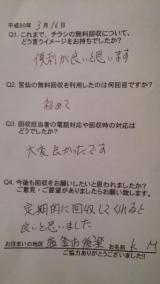 平成30年 3月16日
Q1. これまで、チラシの無料回収について、
どう言うイメージをお持ちでしたか?
便利が良いと思います
Q2. 当社の無料回収を利用したのは何回目ですか?
初めて
Q3. 回収担当者の電話対応や回収時の対応は
どうでしたか
大変良かったです
Q4. 今後も回収をお願いしたいと思われましたか?
ご意見・ご要望がありましたらお願い致します。
定期的に回収してくれると
良いと思いました
お住まいの地区
お名前 K M
ご協力ありがとうございました!!